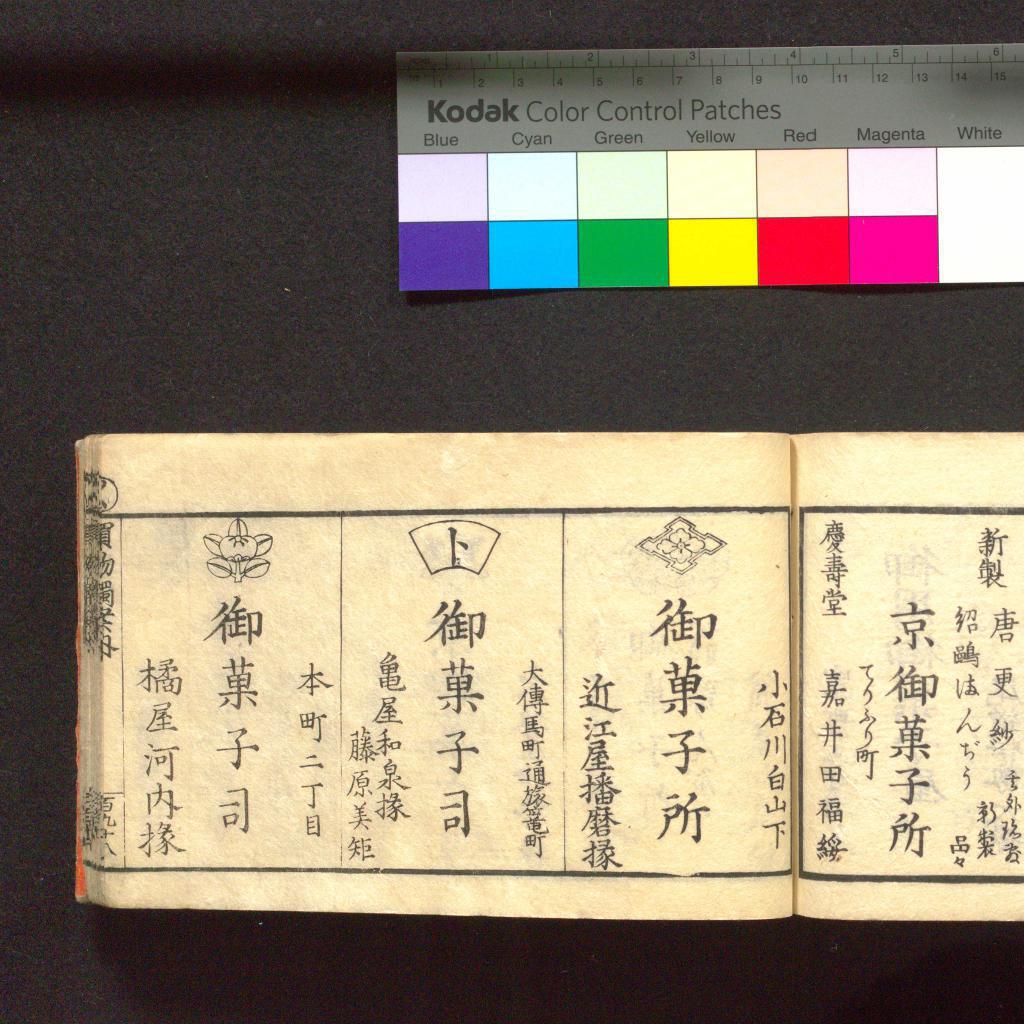 Kodak Color Control Patches
Blue Cyan Green Yellow Red Magenta White
1 2 3 4 5 6
1 2 3 4 5 6 7 8 9 10 11 12 13 14 15
唐更紗
新製
紹鷗まんぢう
新製
品々
京御菓子所
てりふり町
慶壽堂
嘉井田福綏
小石川白山下
御菓子所
近江屋播磨掾
大傳馬町通旅篭町
卜
御菓子司
亀屋和泉掾
藤原美矩
本町二丁目
御菓子司
橘屋河内掾
買物獨案内
百九十八